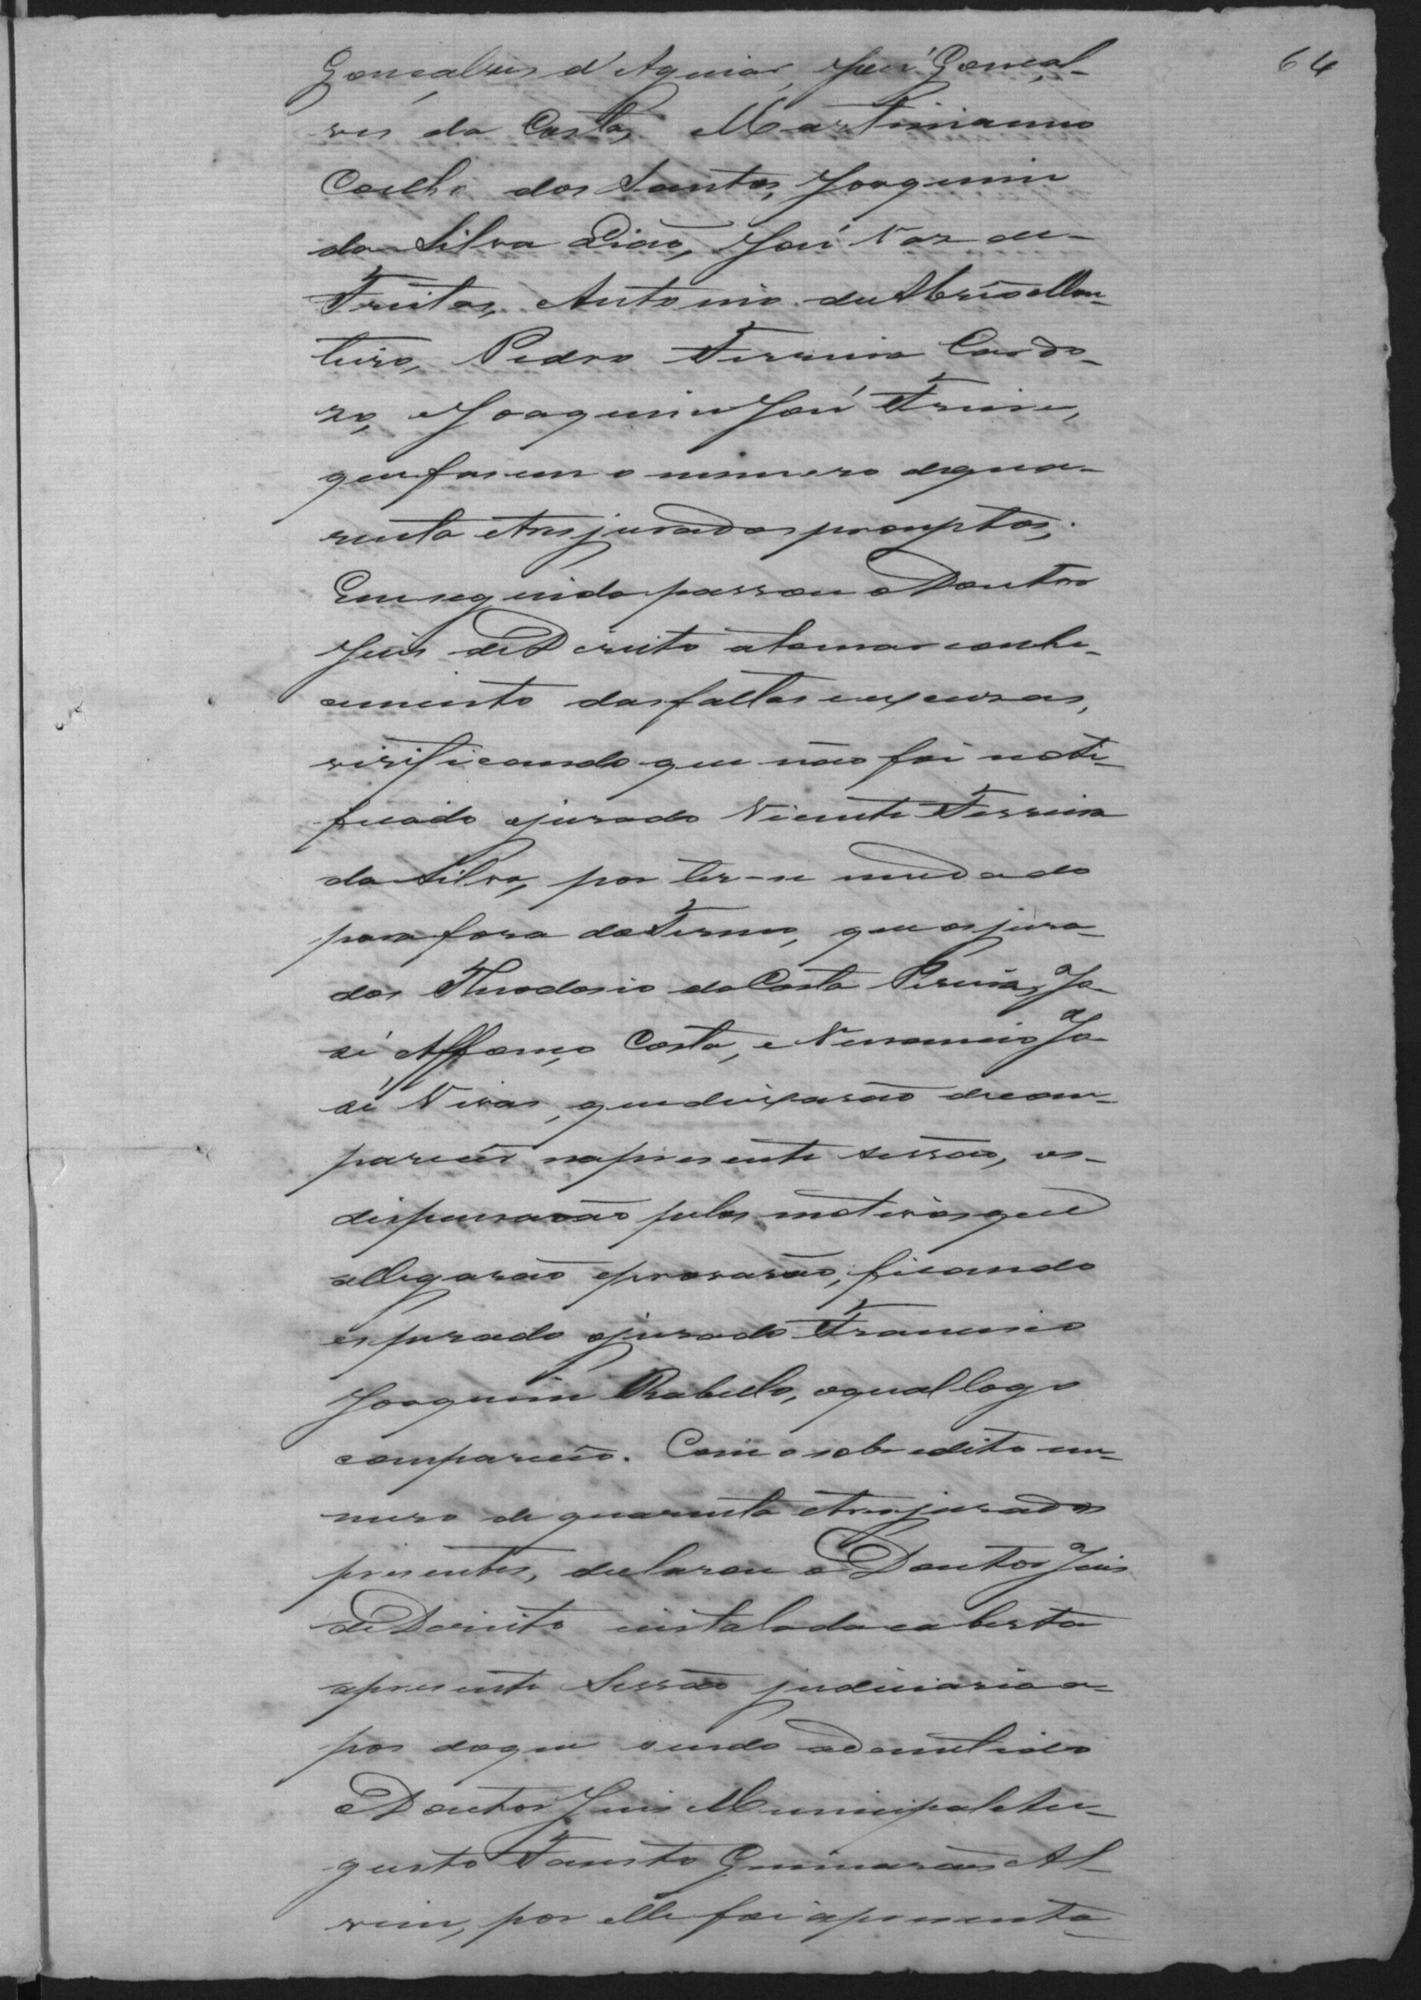 64
Gonçalves d'Aguiar, José Gonçal-
ves da Costa, Martinianno
Coelho dos Santos, Joaquim
da Silva Leão, José Vaz de-
Freitas, Antonio de Abrêo Mon-
teiro, Pedro Ferreira Cardo-
zo, e Joaquim José Freire,
que fasem o numero de qua-
renta e tres jurados promptos.
Em seguida passou o Doutor
Juis de Direito a tomar conhe-
cimento das faltas e excusas,
verificando que não foi noti-
ficado o jurado Vicente Ferreira
da Silva, por ter-se mudado
para fora do Termo, que os jura-
dos Theodosio da Costa Pereira, Jo-
sé Affonço Costa, e Venancio Jo-
sé Vivas, que deixarão de com-
parecer na presente sessão, os-
dispensavão pelos motivos que
allegarão e provarão, ficando
esperado o jurado Francisco
Joaquim Rabello, o qual logo
compareceo. Com o sobredito nu-
mero de quarenta e tres jurados
presentes, declarou o Doutor Juis
de Direito instalada e aberta
a presente Sessão judiciaria a-
pos do que sendo admittido
o Doutor Juis Municipal Au-
gusto Fausto Guimarães Al-
vim, por elle foi apresenta-